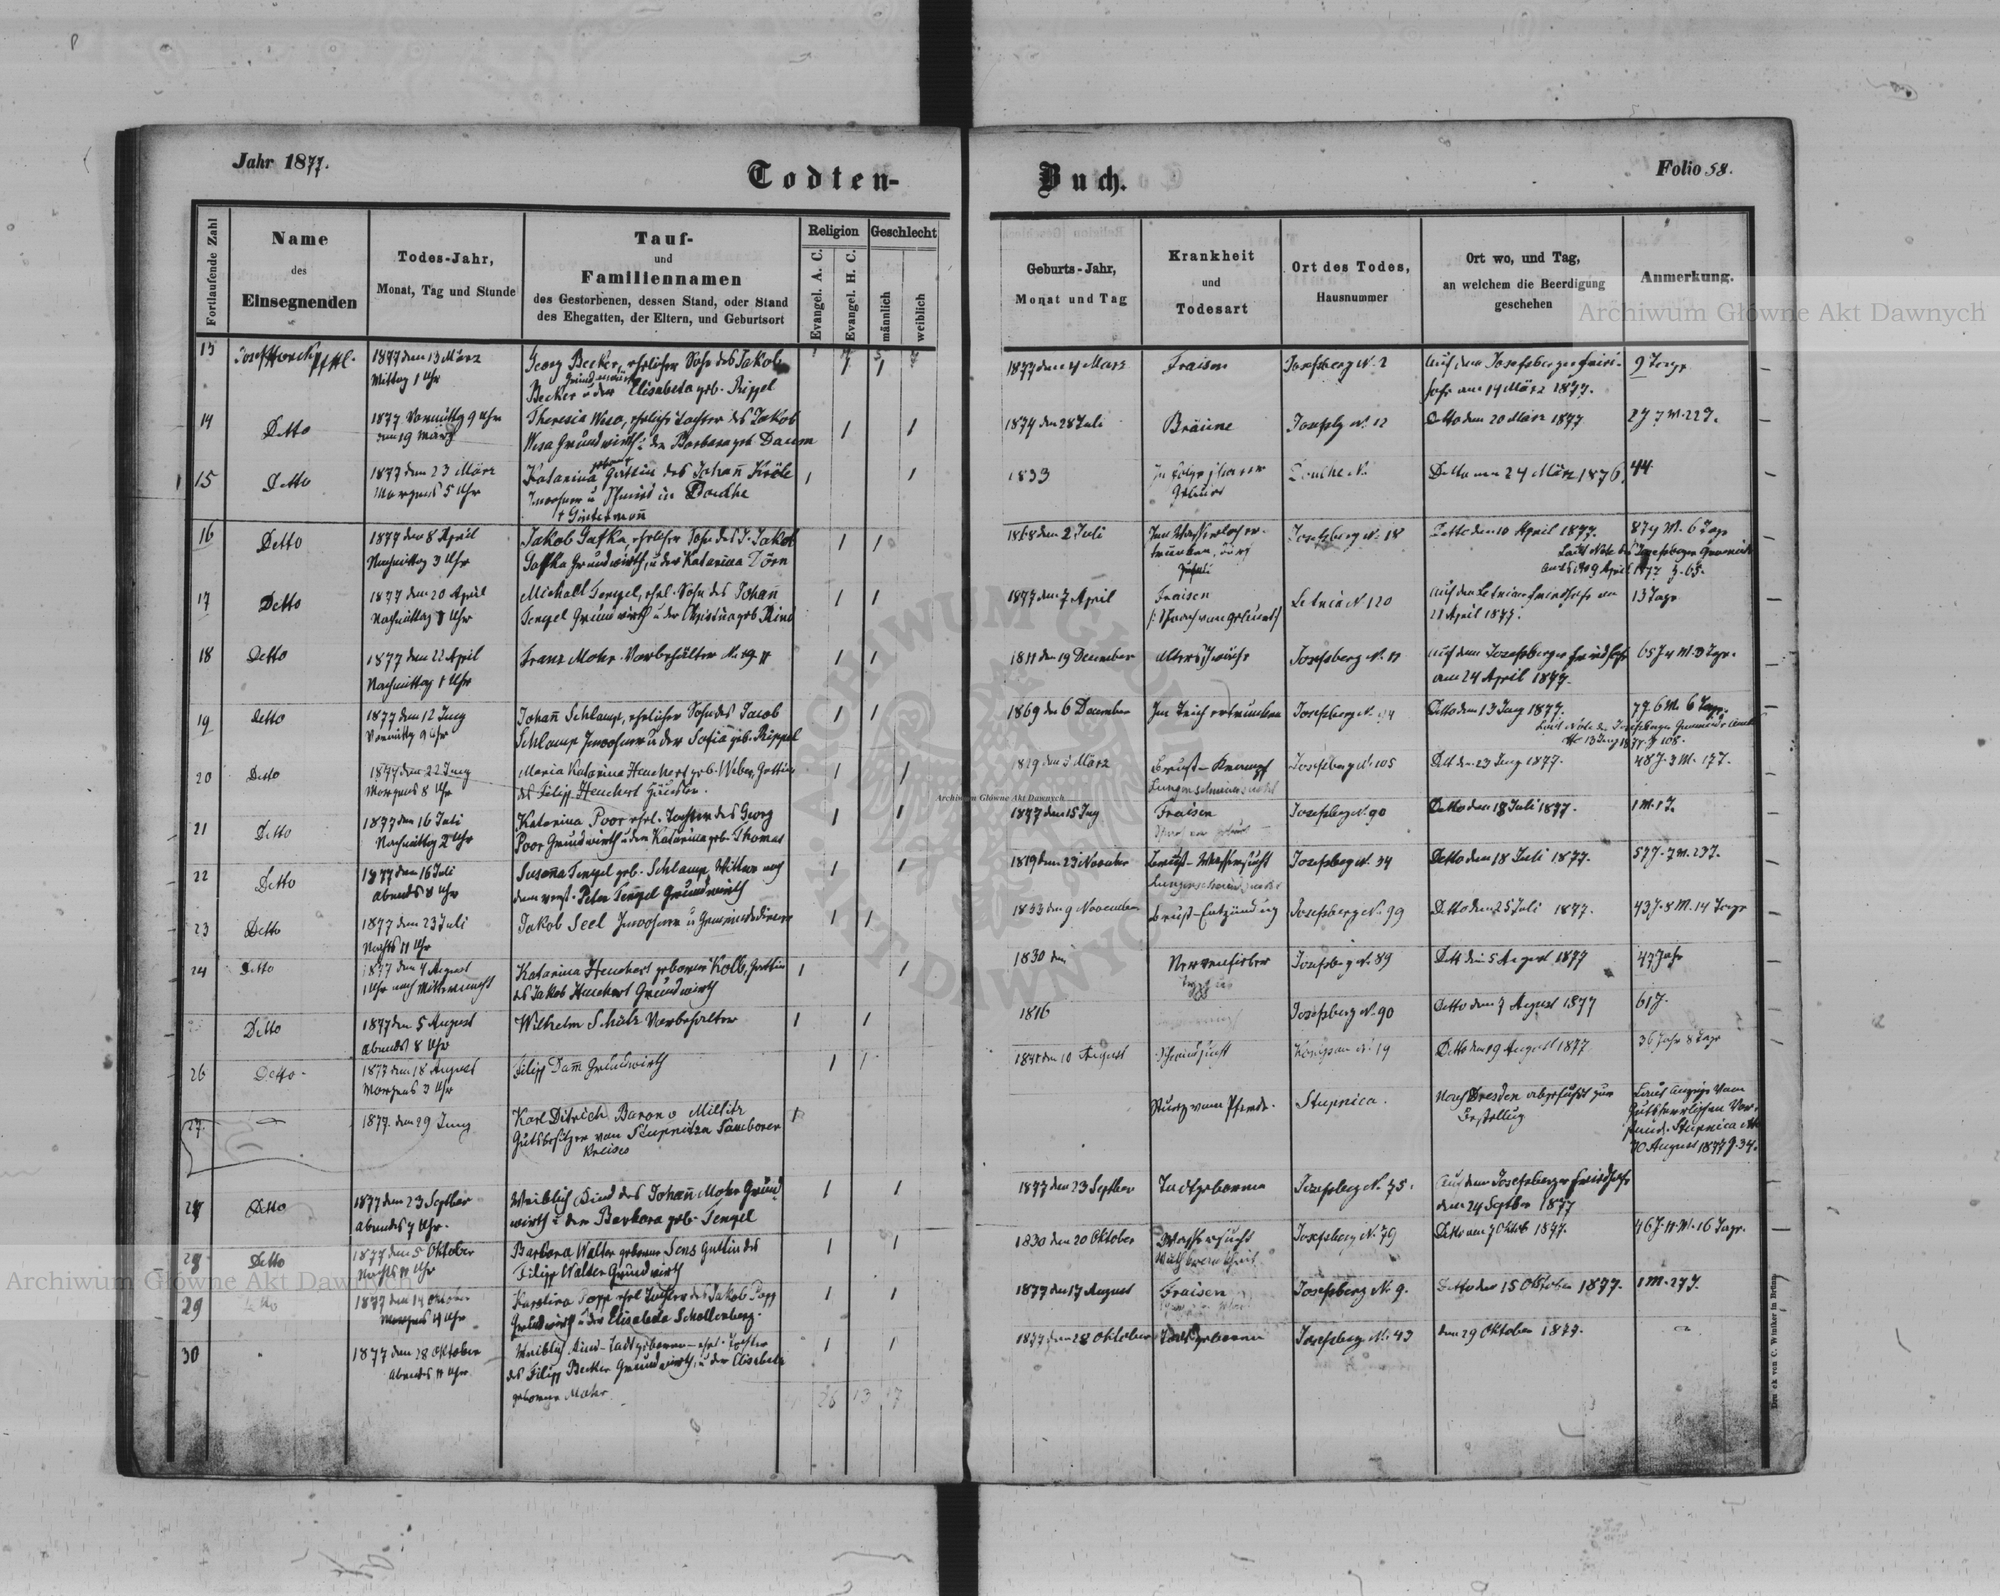 Jahr 1877.
Todten-
Buch.
Folio 58.
Fortlaufende Zahl
Name
des
Einsegnenden
Todes-Jahr,
Monat, Tag und Stunde
Tauf-
und
Familiennamen
des Gestorbenen, dessen Stand, oder Stand
des Ehegatten, der Eltern, und Geburtsort
Religion
Evangel. A. C.
Evangel. H. C.
Geschlecht
männlich
weiblich
Geburts-Jahr,
Monat und Tag
Krankheit
und
Todesart
Ort des Todes,
Hausnummer
Ort wo, und Tag,
an welchem die Beerdigung
geschehen
Anmerkung.
Archiwum Główne Akt Dawnych
1877 den 13 März
Mittag 1 Uhr
Georg Becker, ehelicher Sohn des Jakob
Grundwirth
Becker u der Elisabeta geb. Rippel
1877 den 4 März
Fraisen
Josefsberg N. 2
Auf dem Josefsberger Fried-
hofe am 14 März 1877.
9 Tage
14
Detto
1877 Vormittg 9 Uhr
den 19 März
Theresia Wesa, eheliche Tochter des Jakob
Wesa Grundwirth u der Barbara geb Daum
1874 den 28 Juli
Bräune
N. 12
Detto den 20 März 1877
2J 7M. 22T.
15
Detto
1877 den 23 März
Morgens 5 Uhr
Katarina Gattin des Johañ
in
1833
Geburt
24 März 1876
44
16
Detto
1877 den 8 April
Nachmittag 3 Uhr
Jakob Gafka, ehelicher Sohn des J. Jakob
Gafka Grundwirth, u der Katarina Dörn
1868 den 2 Juli
Josefsberg N. 18
Detto den 10 April 1877.
8J 9M. 6 Tage
Laut Note des Josefsberger Gemeinde
9 April 1877 Z. 65.
17
Detto
1877 den 20 April
Nachmittag 1 Uhr
Michael Tengel, ehel. Sohn des Johañ
Tengel Grundwirth u der Christina geb Rind
1877 den 7 April
Fraisen
Letnia N 120
Auf den Letniaer Friedhofe am
21 April 1877.
13 Tage
18
Detto
1877 den 22 April
Nachmittag 1 Uhr
Franz Mohr. Vorbehälter
1811 den 19 December
Altersschwäche
Josefsberg N. 11
Auf dem Josefsberger Friedhofe
am 24 April 1877.
65J 4M. 3 Tge.
19
Detto
1877 den 12 Juny
Vormittg 9 Uhr
Johañ Schlamp, ehelicher Sohn des Jacob
Schlamp Inwohner u der Sofia geb. Rippel
1869 den 6 December
Im Teich ertrunken
Josefsberg N.
Detto den 13 Juny 1877.
7J. 6M. 6 Tage.
Laut Note des Josefsberger Gemeinde Amts
13 Juny 1877 Z 108.
20
Detto
1877 den 22 Juny
Morgens 8 Uhr
Maria Katarina Heuchert geb. Weber, Gattin
des Filipp Heuchert Häusler.
1829 den 5 März
Brust-Krampf
Josefsberg N. 105
Dett den 23 Juny 1877.
48J. 3M. 17T.
21
Detto
1877 den 16 Juli
Nachmittag 2 Uhr
Katarina Poor ehel. Tochter des Georg
Poor Grundwirth u der Katarina geb. Thomas
1877 den 15 Juny
Fraisen
Josefsberg N. 90
Detto den 18 Juli 1877.
1M. 1T.
22
Detto
1877 den 16 Juli
Abends 8 Uhr
Susaña Tengel geb. Schlamp, Witwe nach
dem verst. Peter Tengel Grundwirth
1819 den 23 November
Brust-Wassersucht
Josefsberg N. 34
Detto den 18 Juli 1877.
57J. 7M. 23T.
23
Detto
1877 den 23 Juli
Nachts 11 Uhr
Jakob Seel Inwohner u Gemeindediener
1833 den 9 November
Brust-Entzündung
Josefsberg N. 99
Detto den 25 Juli 1877.
43J. 8M. 14 Tage
24
Detto
1877 den 4 August
1 Uhr nach Mitternacht
Katarina Heuchert geborne Kolb, Gattin
des Jakob Heuchert Grundwirth
1830 den
Nervenfieber
Typhus
Josefsberg N. 89
Dett den 5 August 1877
47 Jahr
Detto
1877 den 5 August
Abends 8 Uhr
Wilhelm Schulz Vorbehalter
1816
Josefsberg N. 90
Detto den 7 August 1877
61J.
26
Detto
1877 den 18 August
Morgens 3 Uhr
Filipp Dam̃ Grundwirth
1841 den 10 August
Schwindsucht
N. 19
Detto den 19 August 1877
36 Jahr 8 Tage
27.
1877. den 29 Juny
Karl Ditrich Baron v Miltitz
Gutsbesitzer von Stupnitza Samborer
Kreises
Sturz vom Pferde.
Stupnica.
Nach Dresden abgeführt zur
Laut Anzeige vom
Gutsherrlichen
Stupnica
10 August 1877 Z. 34.
Detto
1877 den 23 Septber
Abends 7 Uhr.
Weiblich Kind des Johañ Mohr Grund
wirth u der Barbara geb. Tengel
1877 den 23 Septber
Todtgeboren
Josefsberg N. 75.
Auf dem Josefsberger Friedhofe
den 24 Septber 1877
Detto
1877 den 5 Oktober
Nachts 11 Uhr
Barbara Walter geborne Sens Gattin des
Filipp Walter Grundwirth
1830 den 20 Oktober
Wassersucht
Josefsberg N. 79
Detto am 7 Oktob 1877.
46J. 11M. 16 Tage.
29
Detto
1877 den 14 Oktober
Morgens 4 Uhr
Karolina Popp ehel Tochter des Jakob Popp
Grundwirth u der Elisabeta Schollenberg.
1877 den 17 August
Fraisen
Josefsberg N. 9.
Detto den 15 Oktober 1877.
1M. 27T.
30
1877 den 28 Oktober
Abends 11 Uhr
Weiblich Kind - todtgeboren - ehel. Tochter
des Filipp Becker Grundwirth, u der Elisabeta
geborne Mohr
1877 den 28 Oktober
Todtgeboren
Josefsberg N. 43
den 29 Oktober 1877.
26 13 17
Druck von C. Winiker in Brünn.
Archiwum Główne Akt Dawnych
Archiwum Główne Akt Dawnych